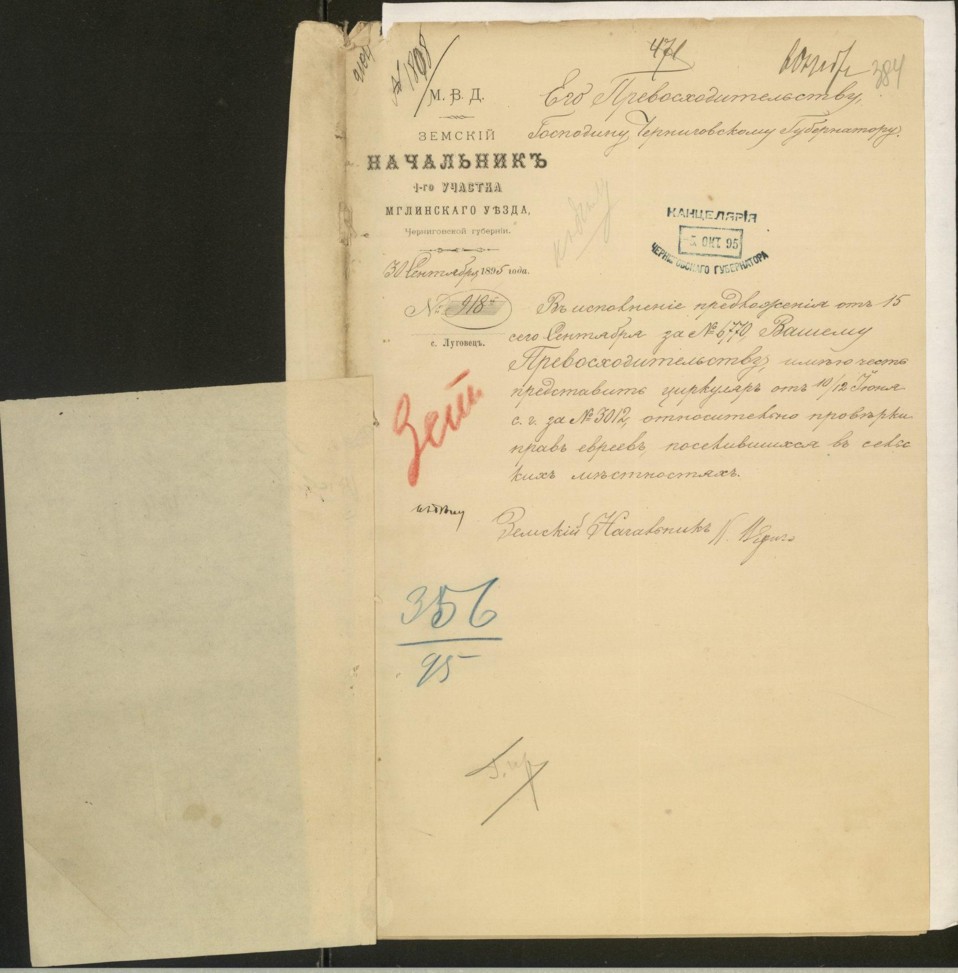 471
384
М. В. Д.
ЗЕМСКІЙ
НАЧАЛЬНИКЪ
1-го УЧАСТКА
МГЛИНСКАГО УѢЗДА,
Черниговской губерніи.
30 Сентября 1895 года.
№ 918
с. Луговецъ.
Его Превосходительству,
Господину Черниговскому Губернатору.
КАНЦЕЛЯРІЯ
ОКТ 95
ЧЕРНИГОВСКАГО ГУБЕРНАТОРА
Въ исполненіе предложенія отъ 15
сего Сентября за № 6770, Вашему
Превосходительству, имѣю честь
представить циркуляръ отъ 10/12 Іюня
с. г. за № 3012, относительно провѣрки
правъ евреевъ, поселившихся въ сель-
кихъ мѣстностяхъ.
Земскій Начальникъ
къ дѣлу
356
95